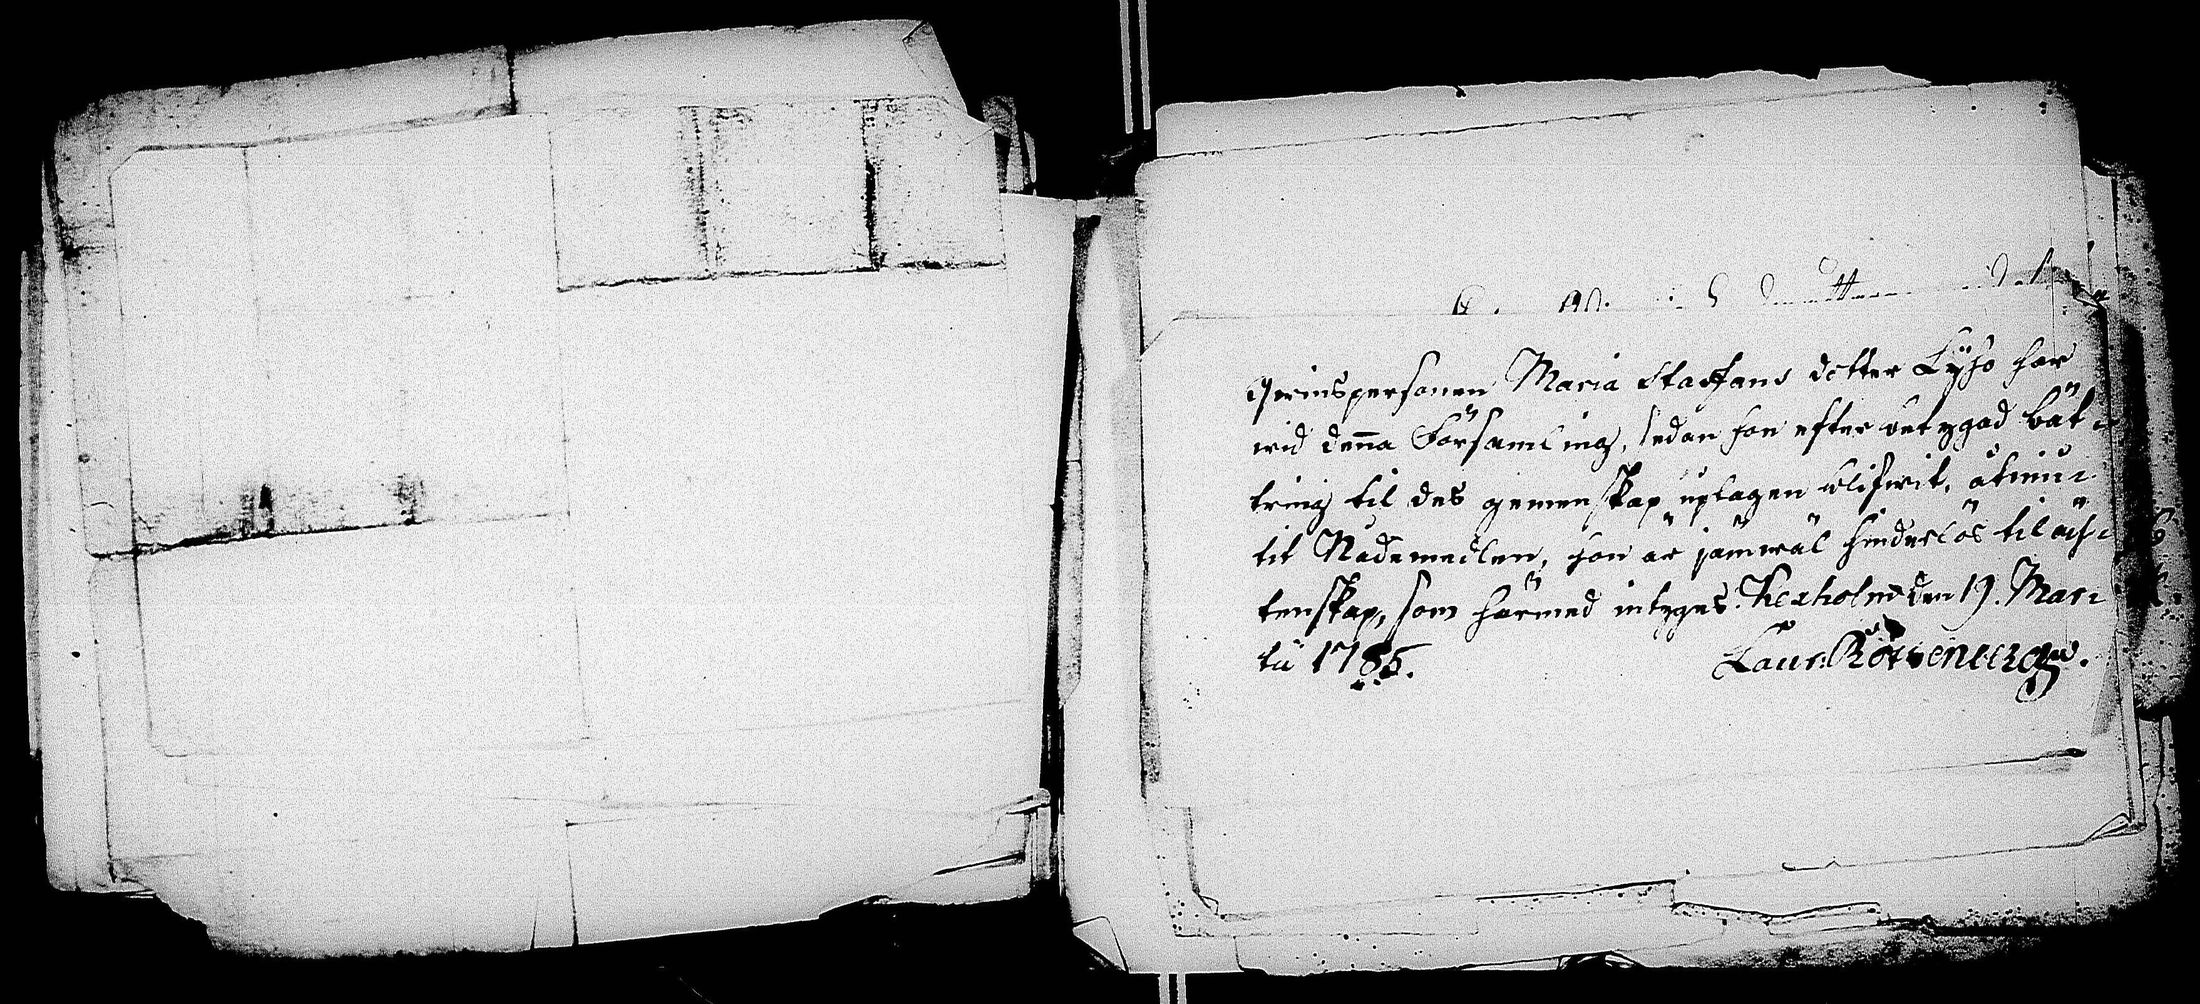 Qvinspersonen Maria Staffans dotter Lyhö har
wid denna Församling, sedan hon efter betygad bät
tring til des gemenskap uptagen blifwit, åtniu
tit Nådemedlen, hon är jämwäl hinderlös til äch
tenskap, som härmed intyges. Kexholm den 19. Mar
tii 1785. Laur: Rötsenberg.